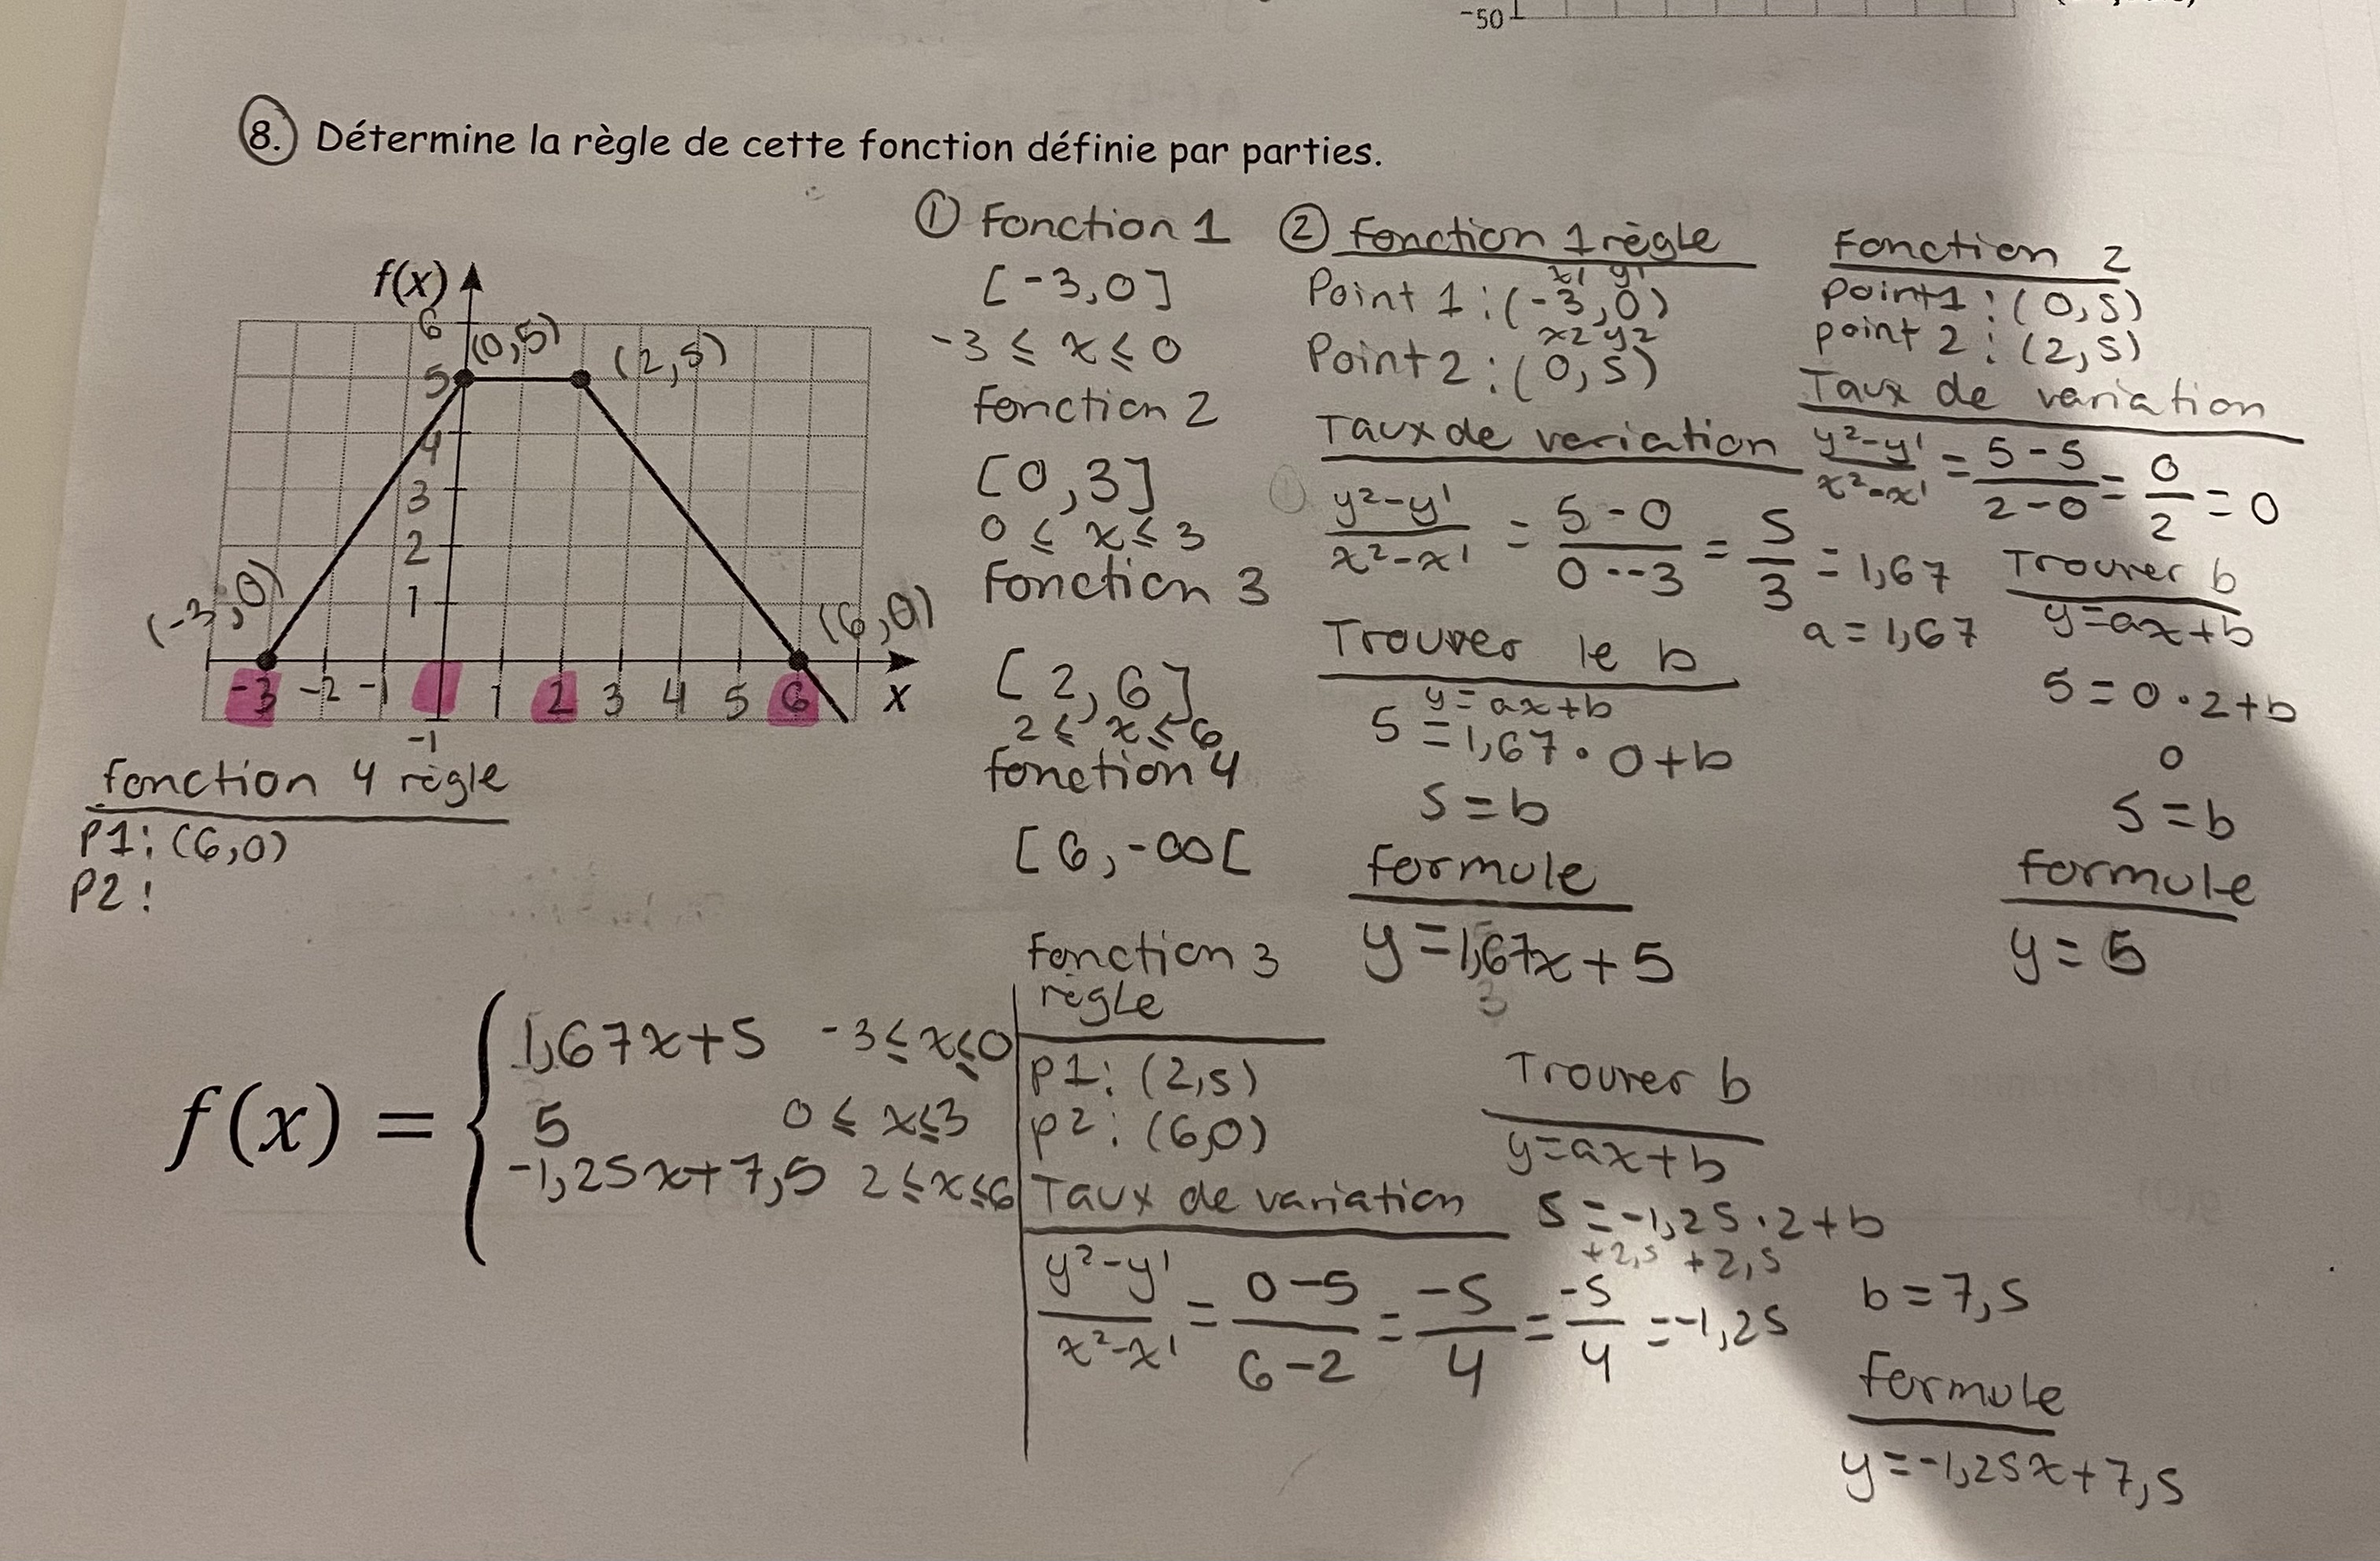 -50
8. Détermine la règle de cette fonction définie par parties.
f(x)
6
5
4
3
2
1
-3 -2 -1 1 2 3 4 5 6 x
-1
(0,5)
(2,5)
(-3,0)
(6,0)
fonction 4 règle
P1: (6,0)
P2:
① Fonction 1
[-3,0]
-3 ≤ x ≤ 0
Fonction 2
[0,3]
0 ≤ x ≤ 3
Fonction 3
[2,6]
2 ≤ x ≤ 6
fonction 4
[6,-∞[
② fonction 1 règle
x1 y1
Point 1: (-3,0)
x2 y2
Point 2: (0,5)
Taux de variation
y2-y1 / x2-x1 = 5-0 / 0--3 = 5/3 = 1,67
a = 1,67
Trouver le b
y=ax+b
5 = 1,67·0+b
5 = b
formule
y = 1,67x+5
3
Fonction 2
point 1: (0,5)
point 2: (2,5)
Taux de variation
y2-y1 / x2-x1 = 5-5 / 2-0 = 0/2 = 0
Trouver b
y=ax+b
5 = 0·2+b
0
5 = b
formule
y = 5
f(x) =
1,67x+5 -3 ≤ x ≤ 0
5 0 ≤ x ≤ 3
-1,25x+7,5 2 ≤ x ≤ 6
Fonction 3
règle
P1: (2,5)
P2: (6,0)
Taux de variation
y2-y1 / x2-x1 = 0-5 / 6-2 = -5/4 = -5/4 = -1,25
Trouver b
y=ax+b
5 = -1,25·2+b
+2,5 +2,5
b = 7,5
formule
y = -1,25x+7,5